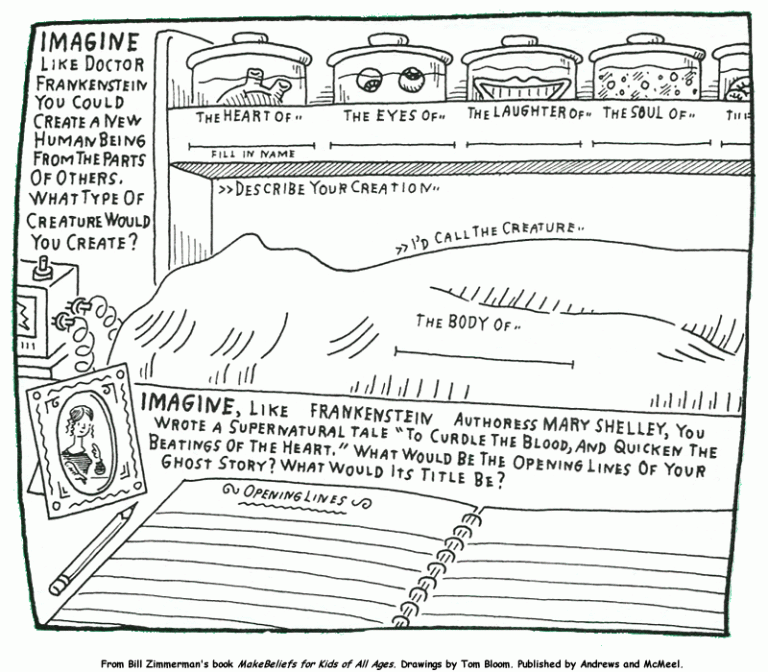 IMAGINE
LIKE DOCTOR
FRANKENSTEIN
YOU COULD
CREATE A NEW
HUMAN BEING
FROM THE PARTS
OF OTHERS.
WHAT TYPE OF
CREATURE WOULD
YOU CREATE?
THE HEART OF..
THE EYES OF..
THE LAUGHTER OF..
THE SOUL OF..
FILL IN NAME
>>DESCRIBE YOUR CREATION..
>>I'D CALL THE CREATURE..
THE BODY OF..
IMAGINE, LIKE FRANKENSTEIN AUTHORESS MARY SHELLEY, YOU
WROTE A SUPERNATURAL TALE "TO CURDLE THE BLOOD, AND QUICKEN THE
BEATINGS OF THE HEART." WHAT WOULD BE THE OPENING LINES OF YOUR
GHOST STORY? WHAT WOULD ITS TITLE BE?
OPENING LINES
From Bill Zimmerman's book MakeBeliefs for Kids of All Ages. Drawings by Tom Bloom. Published by Andrews and McMeel.